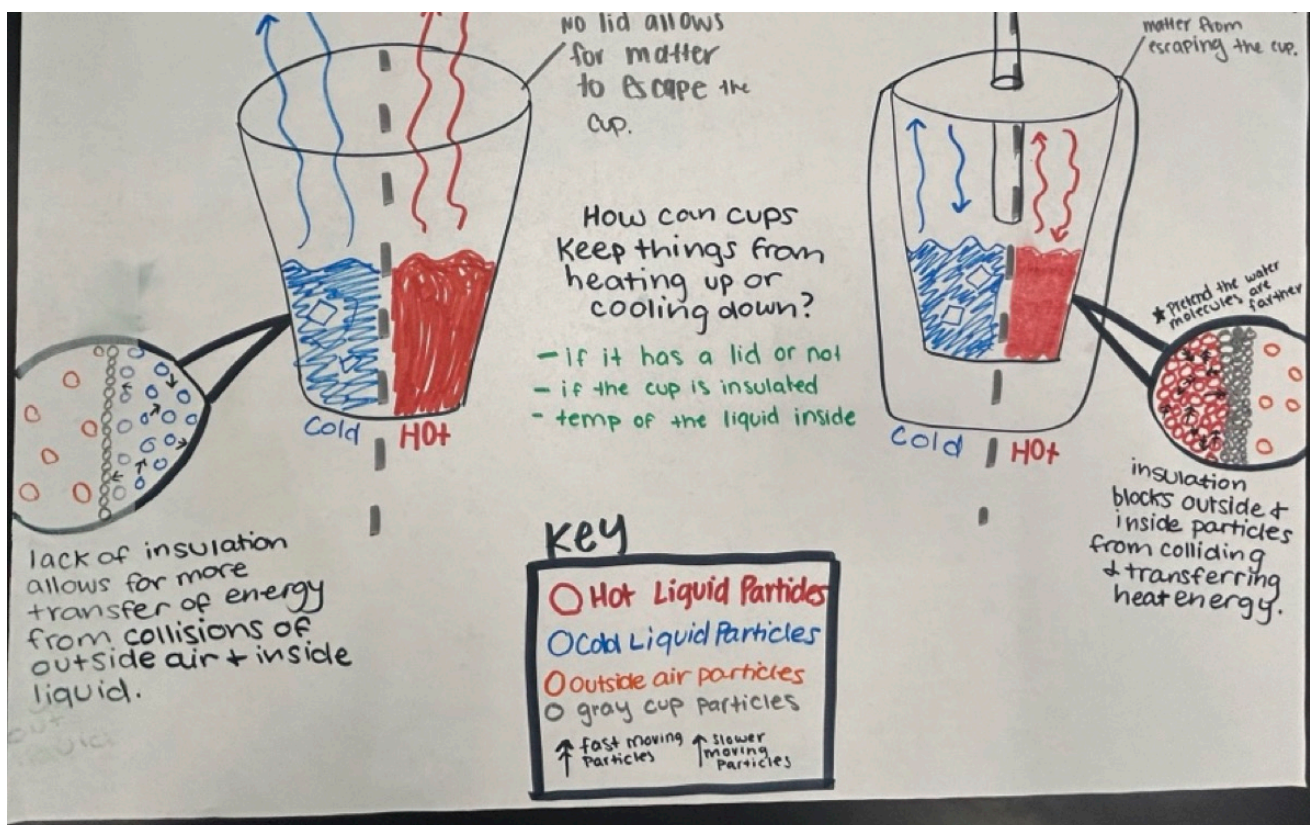 No lid allows
for matter
to escape the
cup.
matter from
escaping the cup.
How can cups
keep things from
heating up or
cooling down?
- if it has a lid or not
- if the cup is insulated
- temp of the liquid inside
Cold
HOt
Cold
HOt
★ Pretend the water
molecules are
farther
lack of insulation
allows for more
transfer of energy
from collisions of
outside air + inside
liquid.
insulation
blocks outside +
inside particles
from colliding
+ transferring
heat energy.
Key
Hot Liquid Particles
Cold Liquid Particles
outside air particles
gray cup particles
fast moving
Particles
slower
moving
Particles